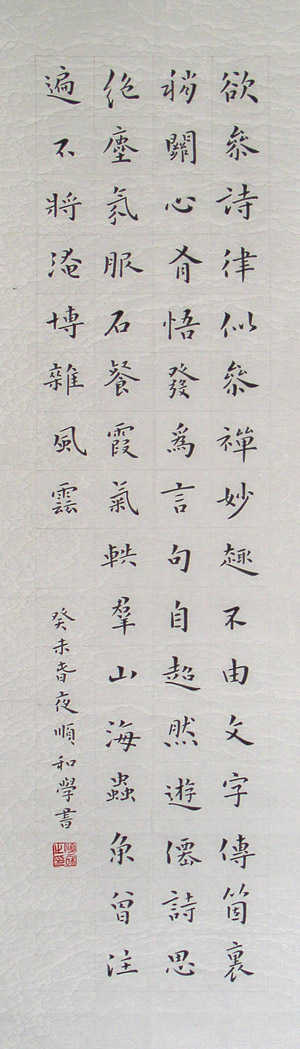 欲參詩律似參禪妙趣不由文字傳箇裏
稍關心有悟發爲言句自超然遊僊詩思
絶塵氛服石餐霞氣軼羣山海蟲魚曾注
遍不將淹博雜風雲
癸未旾夜順和學書